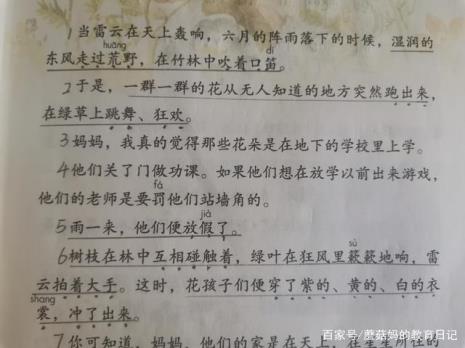 1当雷云在天上轰响，六月的阵雨落下的时候，湿润的
huāng
东风走过荒野，在竹林中吹着口笛。
dí
2于是，一群一群的花从无人知道的地方突然跑出来，
在绿草上跳舞、狂欢。
3妈妈，我真的觉得那些花朵是在地下的学校里上学。
4他们关了门做功课。如果他们想在放学以前出来游戏，
fá
他们的老师是要罚他们站墙角的。
jià
5雨一来，他们便放假了。
6树枝在林中互相碰触着，绿叶在狂风里簌簌地响，雷
sù
云拍着大手。这时，花孩子们便穿了紫的、黄的、白的衣
shang
裳，冲了出来。
7你可知道，妈妈，他们的家是在天上，在
百家号/蘑菇妈的教育日记